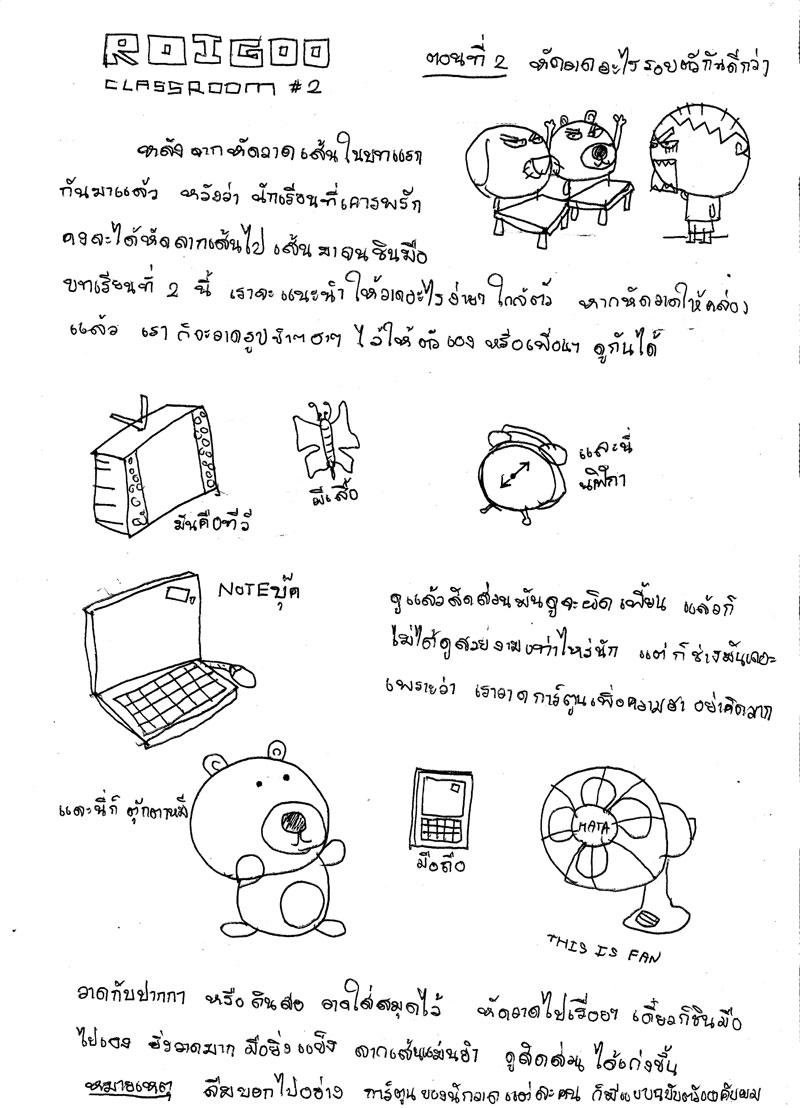 ROIGOO
CLASSROOM #2
ตอนที่ 2 หัดวาดอะไรรอบตัวกันดีกว่า
หลังจากหัดวาดเส้นในบทแรก
กันมาแล้ว หวังว่า นักเรียนที่เคารพรัก
คงจะได้หัดลากเส้นไป เส้นมาจนชินมือ
บทเรียนที่ 2 นี้ เราจะแนะนำให้วาดอะไรง่ายๆ ใกล้ตัว หากหัดวาดให้คล่อง
แล้ว เราก็จะวาดรูปขำๆ ฮาๆ ไว้ให้ตัวเอง หรือเพื่อนๆ ดูกันได้
มันคือทีวี
ผีเสื้อ
และนี่
นาฬิกา
NOTEบุ๊ค
ดูแล้วสัดส่วนมันดูจะผิดเพี้ยน แล้วก็
ไม่ได้ดูสวยงามเท่าไหร่นัก แต่ก็ช่างมันเถอะ
เพราะว่า เราวาดการ์ตูนเพื่อความฮา อย่าคิดมาก
และนี่ก็ ตุ๊กตาหมี
มือถือ
HATA
THIS IS FAN
วาดกับปากกา หรือดินสอ วาดใส่สมุดไว้ หัดวาดไปเรื่อยๆ เดี๋ยวก็ชินมือ
ไปเอง ยิ่งวาดมาก มือยิ่งแข็ง ลากเส้นแม่นยำ ดูสัดส่วนได้เก่งขึ้น
หมายเหตุ ลืมบอกไปอย่าง การ์ตูนของนักวาดแต่ละคน ก็มีแบบฉบับตัวเองคับผม